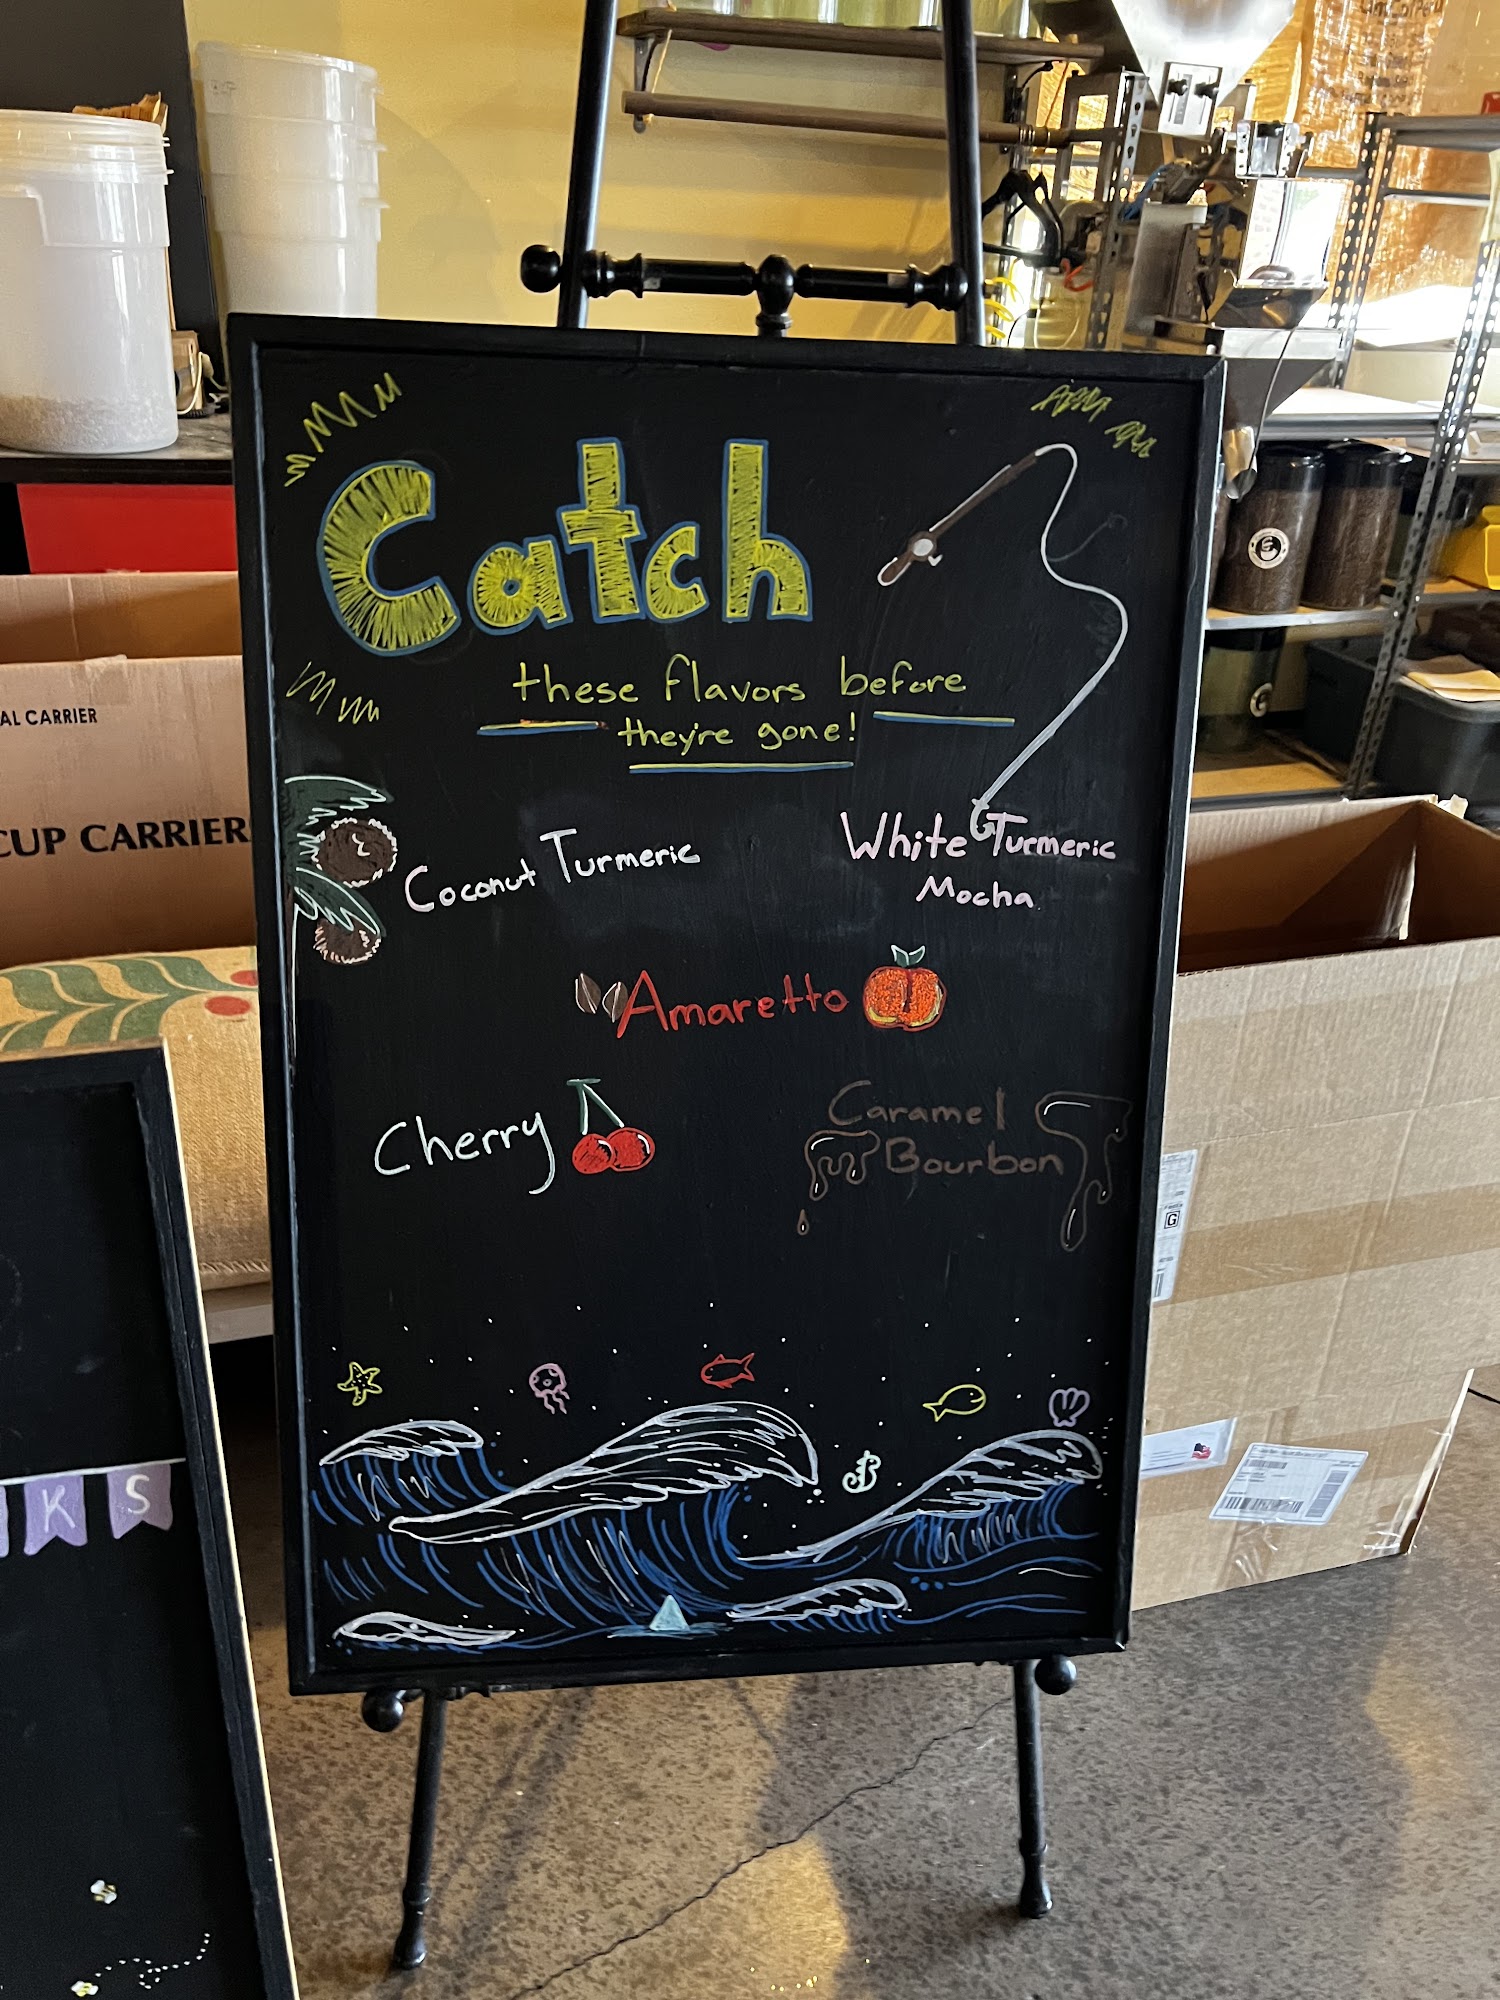 Catch
these flavors before
they're gone!
Coconut Turmeric
White Turmeric
Mocha
Amaretto
Cherry
Caramel
Bourbon
AL CARRIER
CUP CARRIER
KS
G